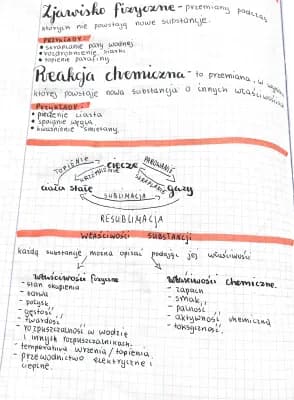 Zjawisko fizyczne - przemiany podczas
których nie powstają nowe substancje.
PRZYKŁADY:
• skraplanie pary wodnej
• rozdrobnienie siarki
• topienie parafiny
Reakcja chemiczna - to przemiana, w wyniku
której powstaje nowa substancja o innych właściwościach
PRZYKŁADY:
• pieczenie ciasta
• spalanie węgla
• kwaśnienie śmietany
TOPIENIE ciecze PAROWANIE
KRZEPNIĘCIE SKRAPLANIE
ciała stałe gazy
SUBLIMACJA
RESUBLIMACJA
WŁAŚCIWOŚCI SUBSTANCJI
każdą substancję można opisać podając jej właściwości
właściwości fizyczne
- stan skupienia
- barwa
- połysk
- gęstość
- twardość
- rozpuszczalność w wodzie
i innych rozpuszczalnikach
- temperatura wrzenia/topienia
- przewodnictwo elektryczne i
cieplne.
właściwości chemiczne
- zapach
- smak
- palność
- aktywność chemiczna
- toksyczność